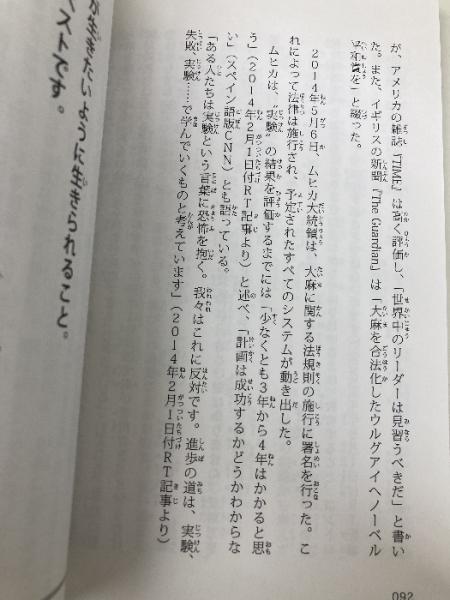 が、アメリカの雑誌『TIME』は高く評価し、「世界中のリーダーは見習うべきだ」と書い
た。また、イギリスの新聞『The Guardian』は「大麻を合法化したウルグアイへノーベル
平和賞を」と綴った。
2014年5月6日、ムヒカ大統領は、大麻に関する法規則の施行に署名を行った。こ
れによって法律は施行され、予定されたすべてのシステムが動き出した。
ムヒカは、〝実験〟の結果を評価するまでには「少なくとも3年から4年はかかると思
う」（2014年2月1日付RT記事より）と述べ、「計画は成功するかどうかわからな
い」（スペイン語版CNN）とも語っている。
「ある人たちは実験という言葉に恐怖を抱く。我々はこれに反対です。進歩の道は、実験、
失敗、実験……で学んでいくものと考えています」（2014年2月1日付RT記事より）
092
が生きたいように生きられること。
ベストです。